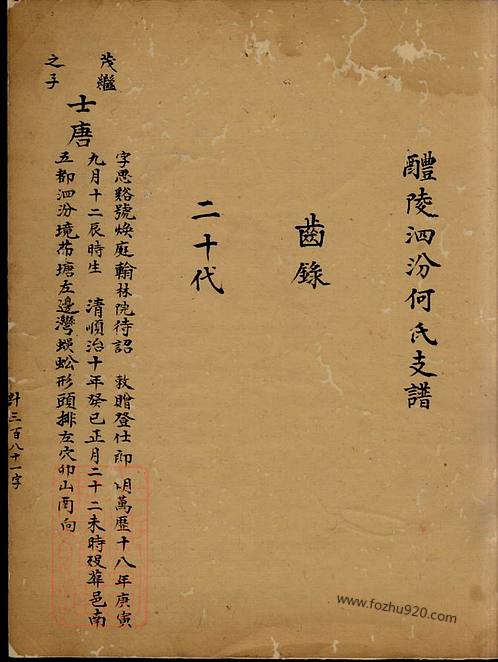 醴陵泗汾何氏支譜
齒錄
二十代
茂繼
之子
士唐
字思谿號煥庭翰林院待詔 敕贈登仕郎 明萬歷十八年庚寅
九月十二辰時生 清順治十年癸巳正月二十二未時歿葬邑南
五都泗汾境帶塘左邊灣蜈蚣形頭排左穴卯山酉向
計三百八十一字
www.fozhu920.com